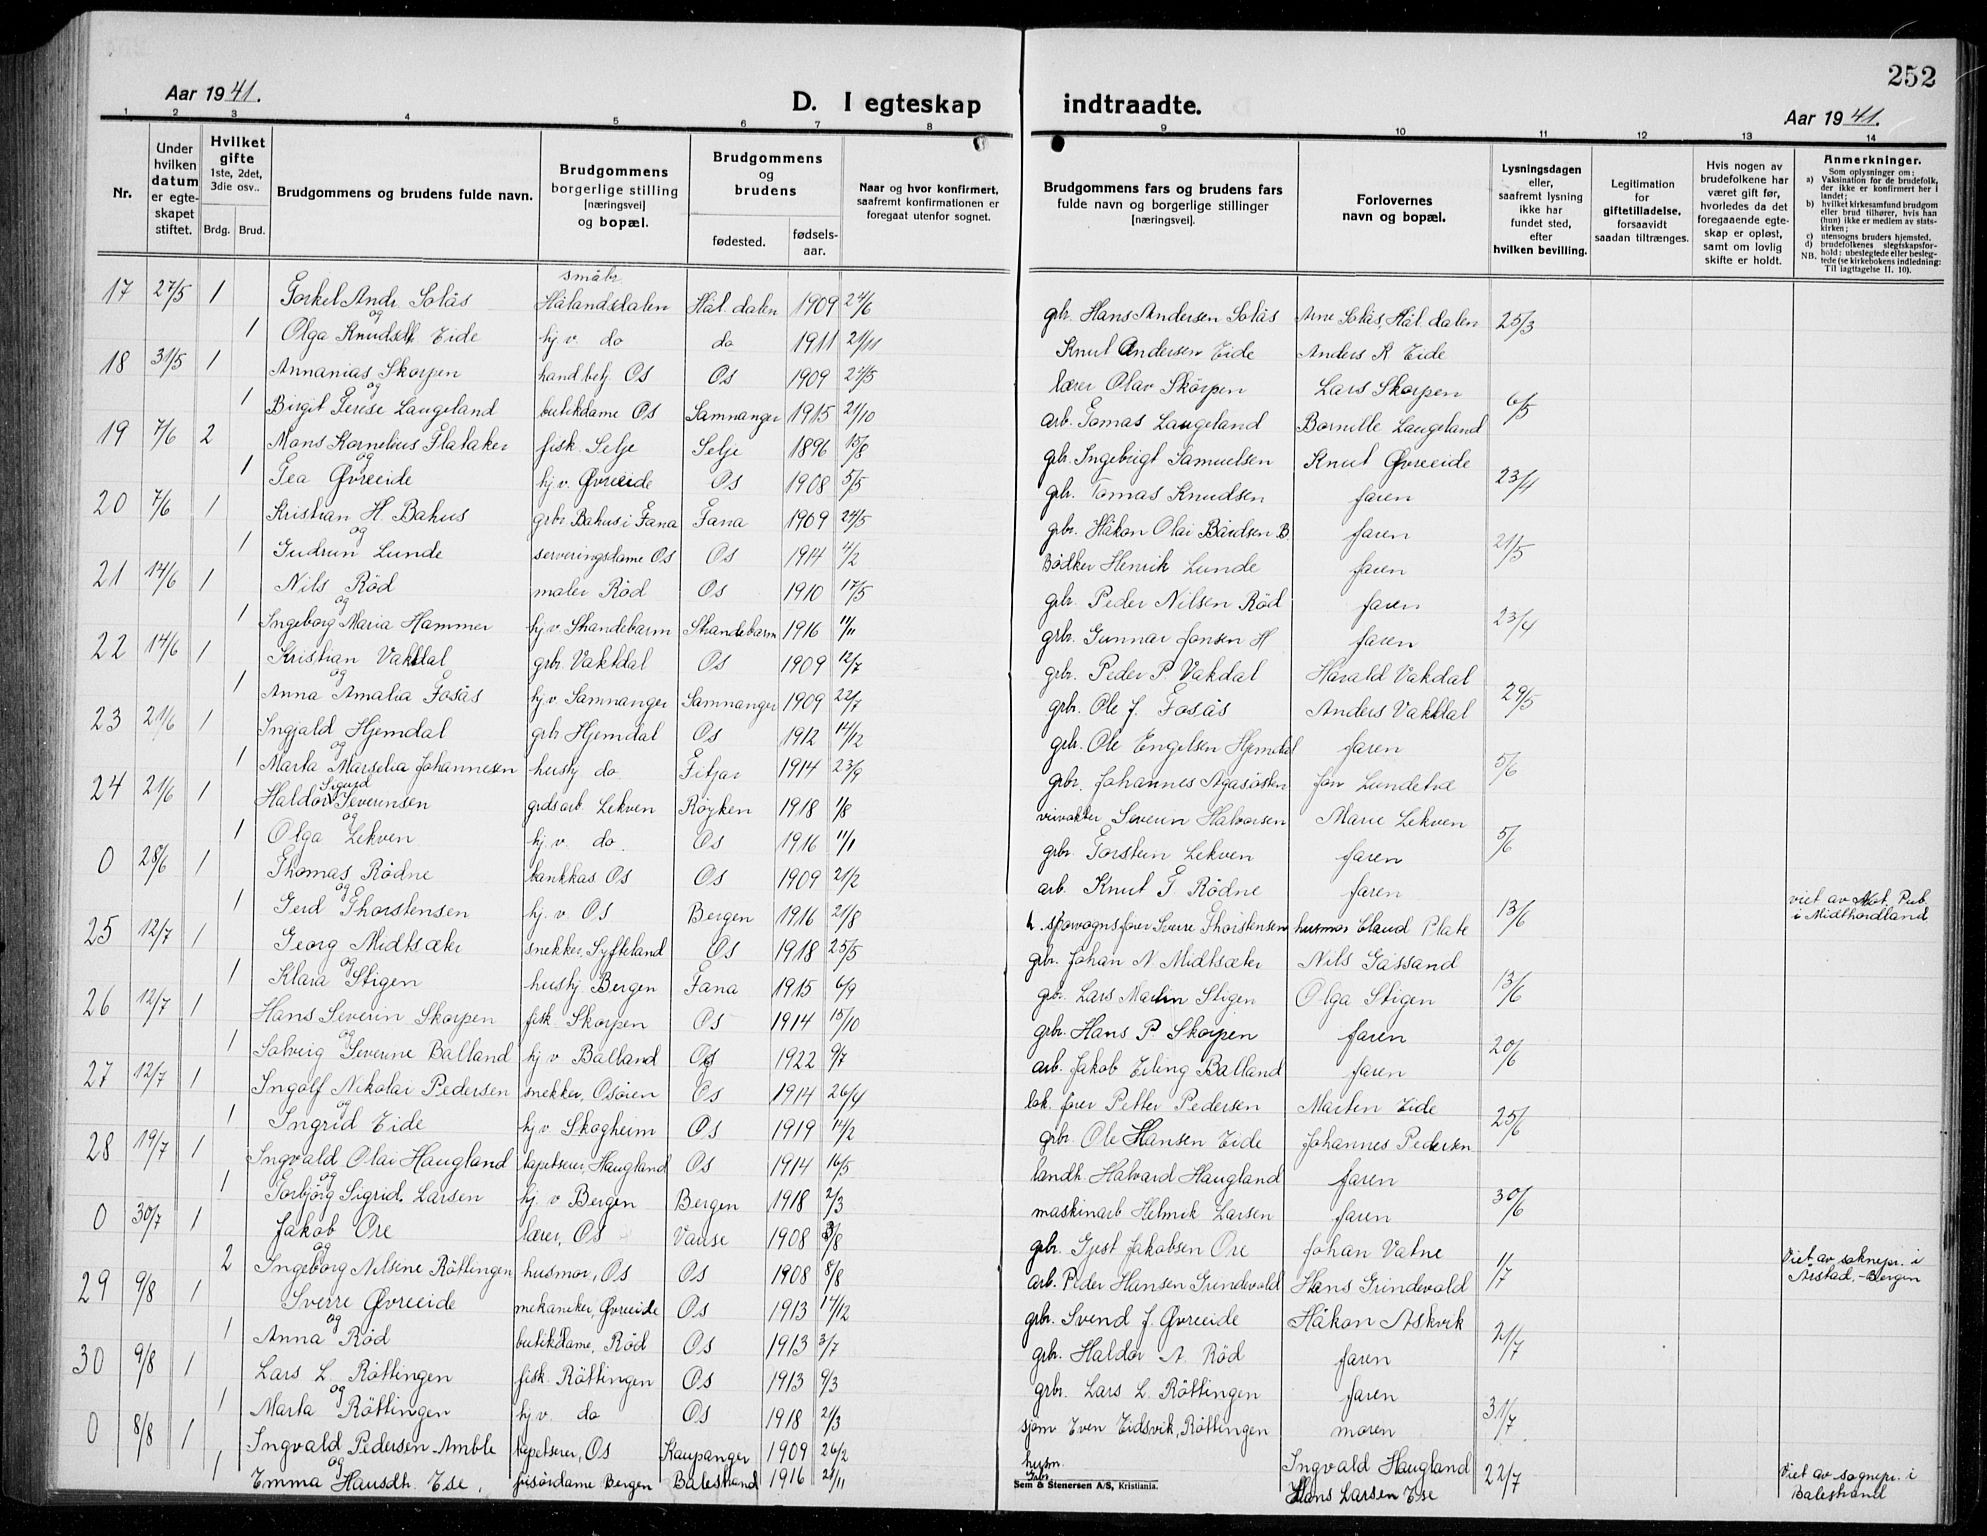 252
Aar 1941.
D. I egteskap indtraadte.
Aar 1941.
1 2 3 4 5 6 7 8 9 10 11 12 13 14
Nr.
Under hvilken datum er egteskapet stiftet.
Hvilket gifte 1ste, 2det, 3die osv..
Brdg. Brud.
Brudgommens og brudens fulde navn.
Brudgommens borgerlige stilling [næringsvei] og bopæl.
Brudgommens og brudens
fødested.
fødselsaar.
Naar og hvor konfirmert, saafremt konfirmationen er foregaat utenfor sognet.
Brudgommens fars og brudens fars fulde navn og borgerlige stillinger [næringsvei].
Forlovernes navn og bopæl.
Lysningsdagen eller, saafremt lysning ikke har fundet sted, efter hvilken bevilling.
Legitimation for giftetilladelse, forsaavidt saadan tiltrænges.
Hvis nogen av brudefolkene har været gift før, hvorledes da det foregaaende egteskap er opløst, samt om lovlig skifte er holdt.
Anmerkninger.
Som oplysninger om:
a) Vaksination for de brudefolk, der ikke er konfirmert her i landet;
b) hvilket kirkesamfund brudgom eller brud tilhører, hvis han (hun) ikke er medlem av statskirken;
c) utensogns bruders hjemsted.
d) brudefolkenes slegtskapsforhold: ubeslegtede eller beslegtede (se kirkebokens indledning:
NB. Til iagttagelse II. 10).
17 27/5 1 Torkel Andr. Solås småbr. Hålandsdalen Hål.dalen 1909 24/6 gbr. Hans Andersen Solås Arne Solås, Hål.dalen 25/3
og
1 Olga Knudsdtr Eide hj.v. do do 1911 21/11 Knut Andersen Eide Anders K Eide
18 31/5 1 Annanias Skorpen handbetj. Os Os 1909 24/5 lærer Olav Skorpen Lars Skorpen 6/5
og
1 Birgit Terese Laugeland butikdame Os Samnanger 1915 21/10 arb. Tomas Laugeland Bornille Laugeland
19 7/6 2 Mons Kornelius Flataker fisk. Selje Selje 1896 15/8 gbr. Ingebrigt Samuelsen Knut Øvreeide 23/4
og
1 Tea Øvreeide hj.v. Øvreeide Os 1908 5/5 gbr. Tomas Knudsen faren
20 7/6 1 Kristian H. Bahus grbr Bahus i Fana Fana 1909 24/5 gbr. Håkon Olai Bårdsen B faren 21/5
og
1 Gudrun Lunde serveringsdame Os Os 1914 4/2 Bødker Henrik Lunde faren
21 14/6 1 Nils Rød maler Rød Os 1910 17/5 gbr. Peder Nilsen Rød faren 23/4
og
1 Ingeborg Maria Hammer hj.v. Strandebarm Strandebarm 1916 11/11 grbr. Gunnar Jonsen H faren
22 14/6 1 Kristian Vakdal grbr. Vakdal Os 1909 12/7 gbr. Peder P. Vakdal Harald Vakdal 29/5
og
1 Anna Amalia Fosås hj.v. Samnanger Samnanger 1909 22/7 grbr. Ole J. Fosås Anders Vakdal
23 21/6 1 Ingjald Hjemdal grbr Hjemdal Os 1912 14/12 gbr. Ole Engelsen Hjemdal faren 5/6
og
1 Marta Marselia Johannesen hushj do. Fitjar 1914 23/9 grbr. Johannes Agasøsten Jon Lundetræ
24 21/6 1 Haldor Sigurd Severinsen grdsarb. Lekven Røyken 1918 1/8 veivokter Severin Halvorsen Marie Lekven 5/6
og
1 Olga Lekven hj.v. do. Os 1916 11/1 grbr. Torstein Lekven faren
0 28/6 1 Thomas Rødne bankkas. Os Os 1909 21/2 arb. Knut T. Rødne faren 13/6 viet av Not. Pub. i Midthordland
og
1 Gerd Thorstensen hj.v. Os Bergen 1916 21/8 sporvognsfører Sverre Thorstensen husmor Plate
25 12/7 1 Georg Midtsæter snekker, Syfteland Os 1918 25/5 gbr. Johan N. Midtsæter Nils Gåssand 13/6
og
1 Klara Stigen hushj. Bergen Fana 1915 6/9 gbr. Lars Martin Stigen Olga Stigen
26 12/7 1 Hans Severin Skorpen fisk. Skorpen Os 1914 15/10 grbr. Hans P. Skorpen faren 20/6
og
1 Solveig Severine Balland hj.v Balland Os 1922 9/7 arb. Jakob Elling Balland faren
27 12/7 1 Ingolf Nikolai Pedersen snekker, Osøren Os 1914 26/4 lok.fører Petter Pedersen Marten Eide 25/6
og
1 Ingrid Eide hj.v. Skogheim Os 1919 12/2 grbr. Ole Hansen Eide Johannes Pedersen
28 19/7 1 Ingvald Olai Haugland tapetserer, Haugland Os 1914 16/5 landh. Halvard Haugland faren 30/6
og
1 Torbjørg Sigrid Larsen hj.v Bergen Bergen 1918 2/3 maskinarb Helmik Larsen faren
0 30/7 1 Jakob Ore lærer, Os Vanse 1908 3/8 gbr. Gjest Jakobsen Ore Johan Vatne 1/7 Viet av soknepr. i Årstad, - Bergen
og
2 Ingeborg Nilsine Røttingen husmor, Os Os 1908 8/8 arb. Peder Hansen Grindevold Hans Grindevold
29 9/8 1 Sverre Øvreeide mekaniker, Øvreeide Os 1913 14/12 grbr. Svend J. Øvreeide Håkon Askvik 21/7
og
1 Anna Rød butikdame, Rød Os 1913 3/7 gbr. Haldor A. Rød faren
30 9/8 1 Lars L. Røttingen fisk. Røttingen Os 1913 9/3 grbr. Lars L. Røttingen faren 31/7
og
1 Marta Røttingen hj.v. do Os 1918 21/3 sjøm Even Eidsvik, Røttingen moren
0 8/8 1 Ingvald Pedersen Amble tapetserer, Os Kaupanger 1909 26/2 husm. Ingvald Haugland 22/7 Viet av sognepr. i Balestrand
og
1 Emma Hansdtr. Ese, frisørdame Bergen Balestrand 1916 21/11 Gbr. Hans Larsen Ese
Sem & Stenersen A/S, Kristiania.